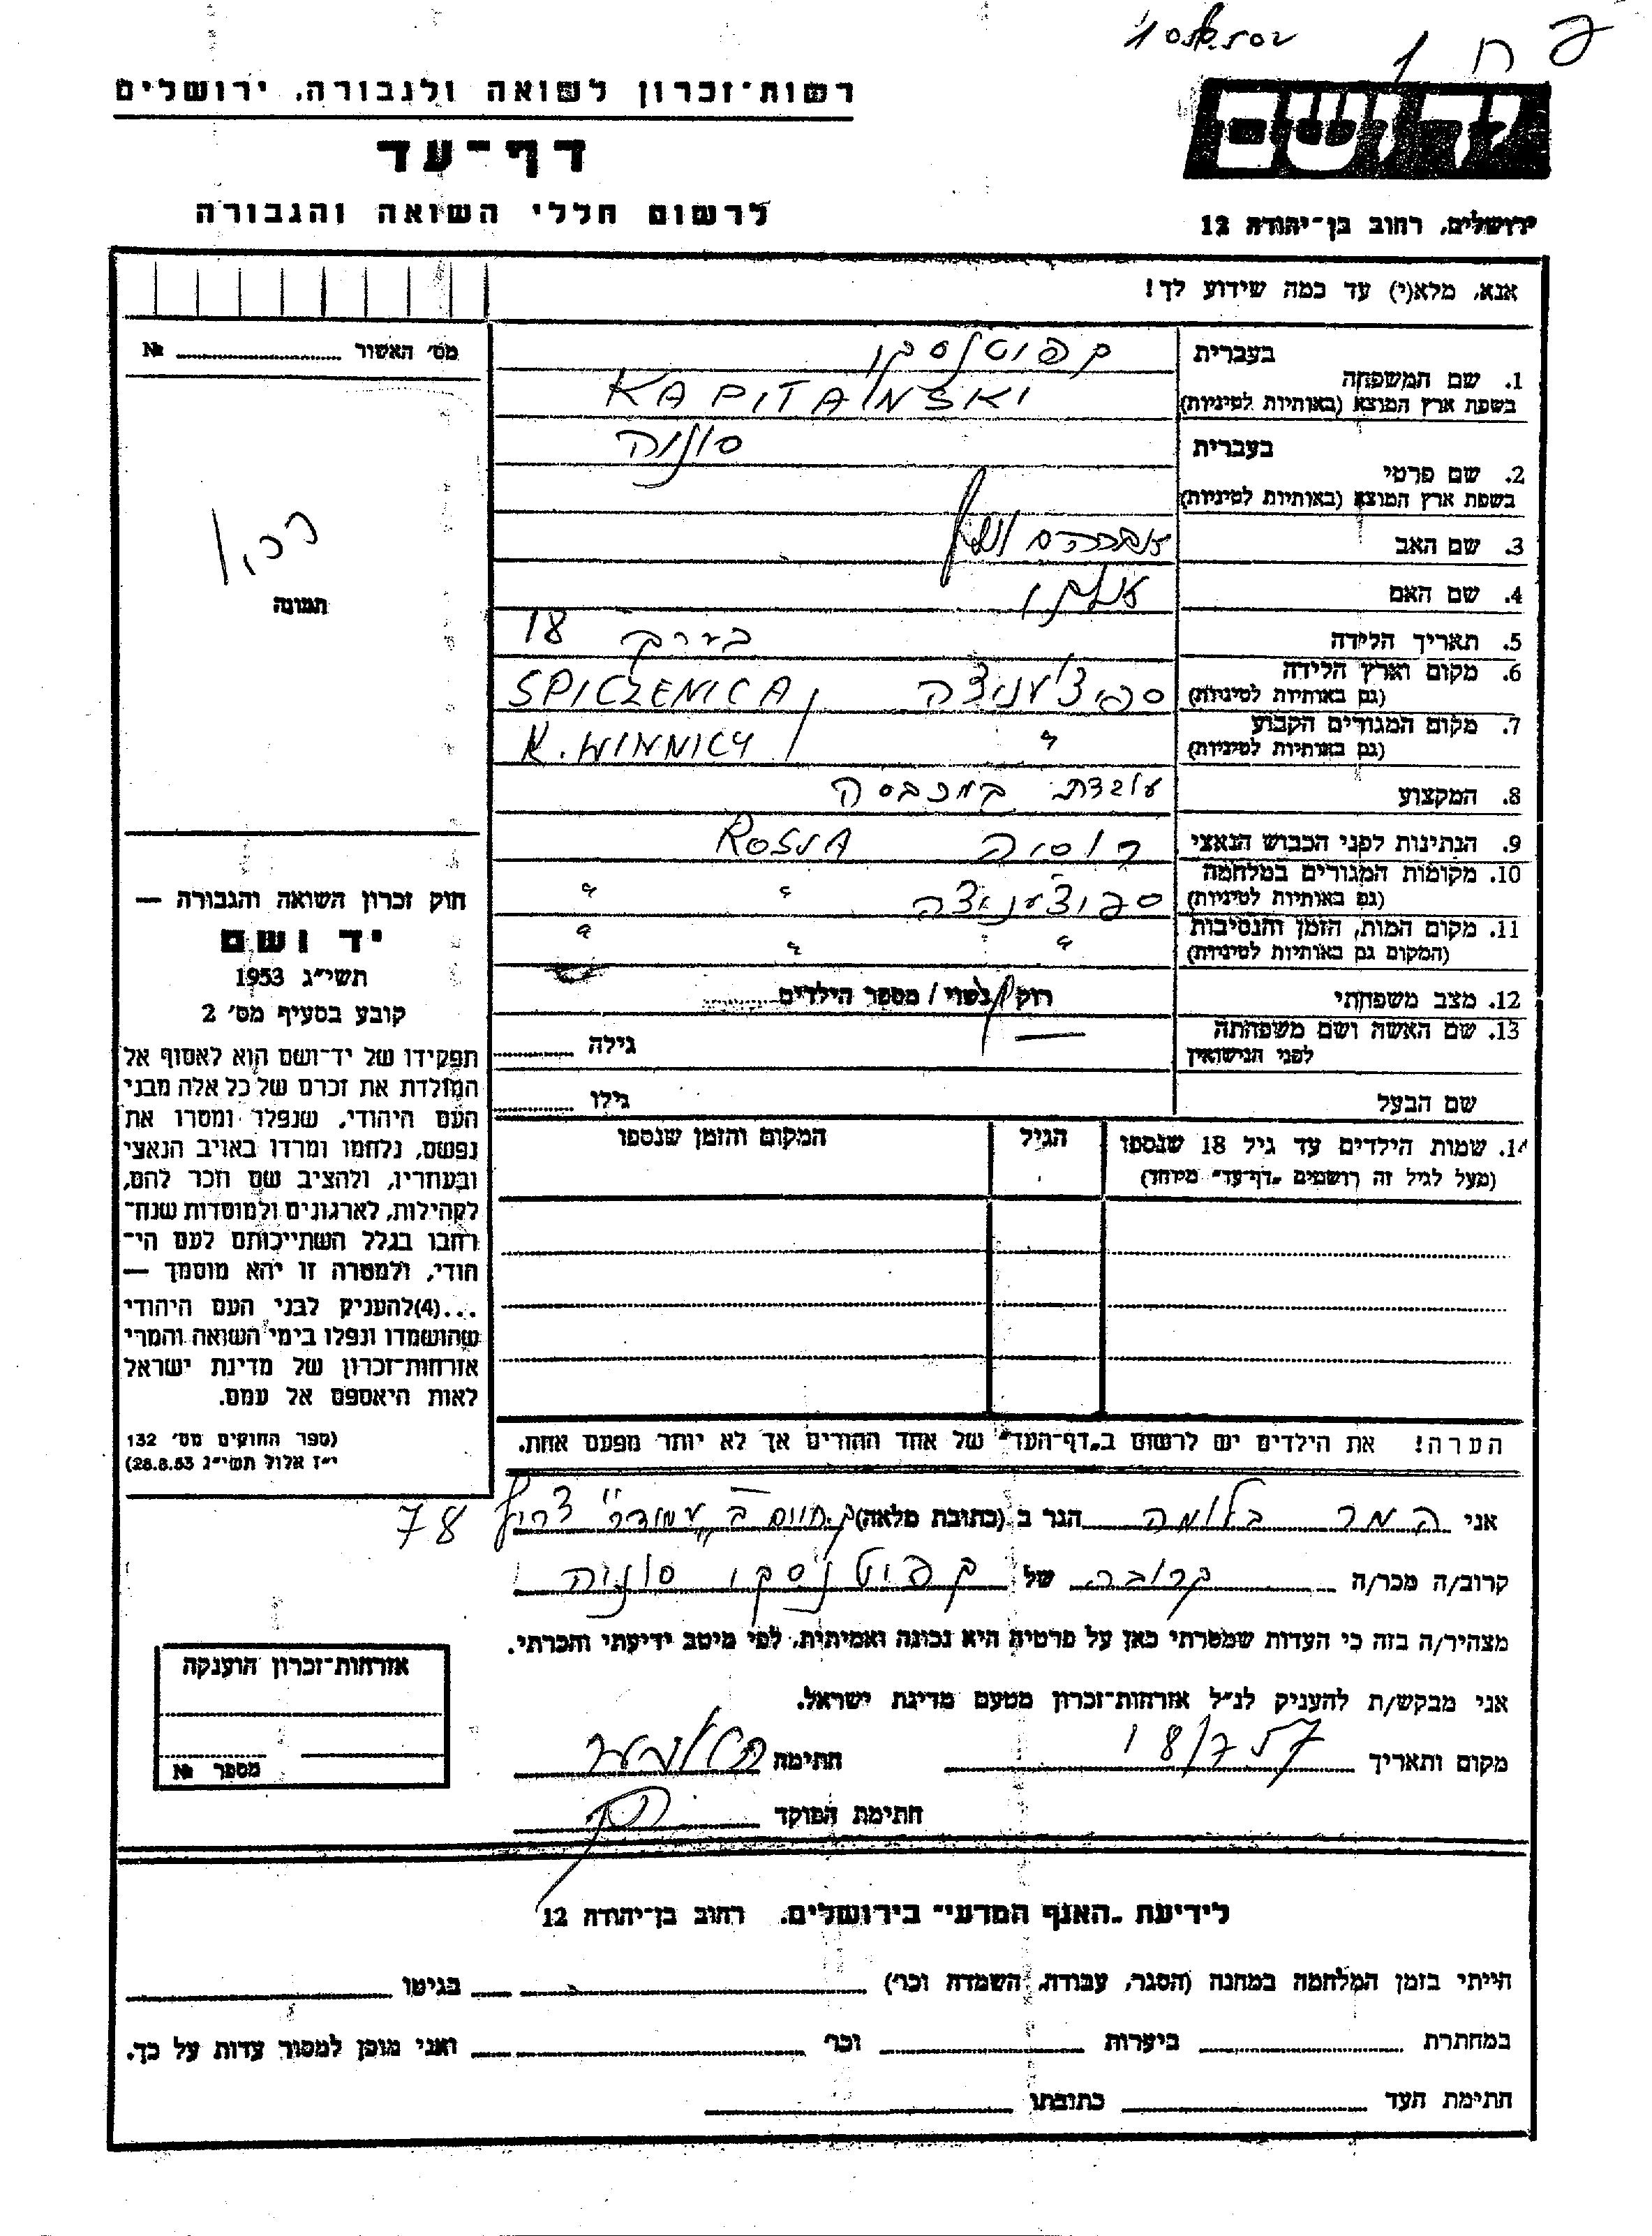 רשות־זכרון לשואה ולגבורה, ירושלים
דף־עד
לרשום חללי השואה והגבורה
יד ושם
ירושלים, רחוב בן־יהודה 12
אנא, מלא(י) עד כמה שידוע לך!
מס׳ האשור №
תמונה
1. שם המשפחה
בעברית קפיטנסקי
בשפת ארץ המוצא (באותיות לטיניות) KAPITAŃSKI
2. שם פרטי
בעברית סוניה
בשפת ארץ המוצא (באותיות לטיניות)
3. שם האב אברהם
4. שם האם
5. תאריך הלידה בערך 18
6. מקום וארץ הלידה ספיצ׳ניצה SPICZENICA
(גם באותיות לטיניות)
7. מקום המגורים הקבוע " K. WINNICY
(גם באותיות לטיניות)
8. המקצוע עובדת במכבסה
9. הנתינות לפני הכבוש הנאצי רוסיה ROSJA
10. מקומות המגורים במלחמה ספיצ׳ניצה " "
(גם באותיות לטיניות)
11. מקום המות, הזמן והנסיבות " " "
(המקום גם באותיות לטיניות)
12. מצב משפחתי רוק/נשוי/ מספר הילדים
13. שם האשה ושם משפחתה
לפני הנישואין גילה
שם הבעל גילו
14. שמות הילדים עד גיל 18 שנספו הגיל המקום והזמן שנספו
(מעל לגיל זה רושמים „דף־עד״ מיוחד)
הערה! את הילדים יש לרשום ב„דף־העד״ של אחד ההורים אך לא יותר מפעם אחת.
חוק זכרון השואה והגבורה —
יד ושם
תשי״ג 1953
קובע בסעיף מס׳ 2
תפקידו של יד־ושם הוא לאסוף אל
המולדת את זכרם של כל אלה מבני
העם היהודי, שנפלו ומסרו את
נפשם, נלחמו ומרדו באויב הנאצי
ובעוזריו, ולהציב שם וזכר להם,
לקהילות, לארגונים ולמוסדות שנח־
רחבו בגלל השתייכותם לעם הי־
הודי, ולמטרה זו יהא מוסמך —
...(4)להעניק לבני העם היהודי
שהושמדו ונפלו בימי השואה והמרי
אזרחות־זכרון של מדינת ישראל
לאות היאספם אל עמם.
(ספר החוקים מס׳ 132
י״ז אלול תשי״ג 28.8.53)
אני המר בלומה הגר ב (כתובת מלאה) ק. חיים ב׳ „עמידר״ צריף 78
קרוב/ה מכר/ה קרובה של קפיטנסקי סוניה
מצהיר/ה בזה כי העדות שמסרתי כאן על פרטיה היא נכונה ואמיתית, לפי מיטב ידיעתי והכרתי.
אני מבקש/ת להעניק לנ״ל אזרחות־זכרון מטעם מדינת ישראל.
מקום ותאריך 18/7 57 חתימה
חתימת הפוקד
אזרחות־זכרון הוענקה
מספר №
לידיעת „האגף המדעי״ בירושלים. רחוב בן־יהודה 12
הייתי בזמן המלחמה במחנה (הסגר, עבודה, השמדה וכו׳) בגיטו
במחתרת ביערות וכו׳ ואני מוכן למסור עדות על כך.
חתימת העד כתובתו